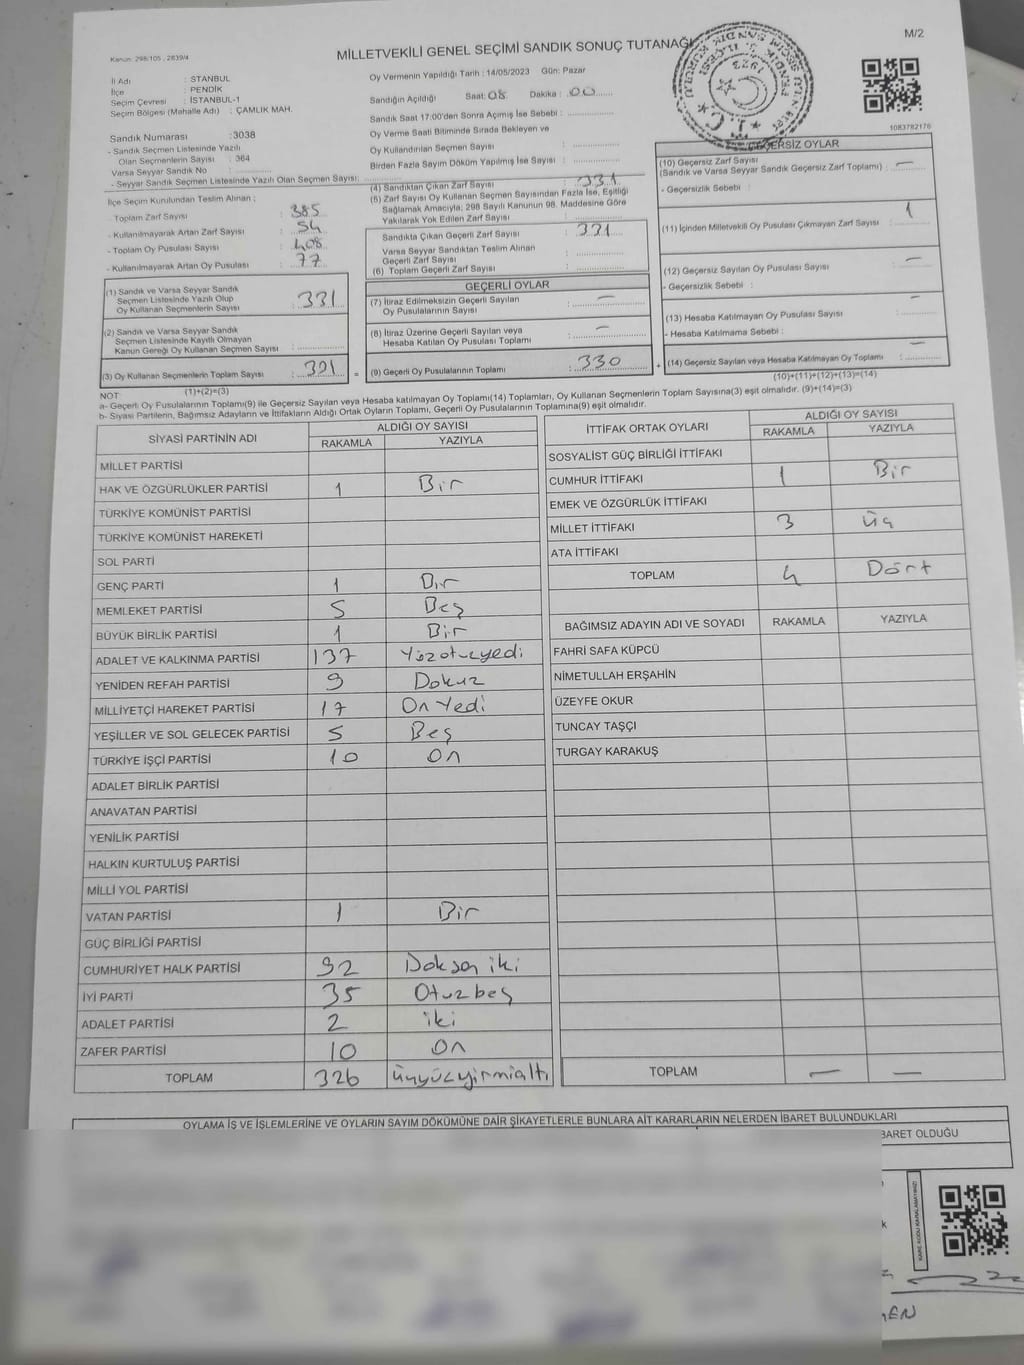 Kanun: 298/105 , 2839/4
MİLLETVEKİLİ GENEL SEÇİMİ SANDIK SONUÇ TUTANAĞI
M/2
İl Adı : STANBUL
İlçe : PENDİK
Seçim Çevresi : İSTANBUL-1
Seçim Bölgesi (Mahalle Adı) : ÇAMLIK MAH.
Sandık Numarası :3038
- Sandık Seçmen Listesinde Yazılı
Olan Seçmenlerin Sayısı : 364
Varsa Seyyar Sandık No :
- Seyyar Sandık Seçmen Listesinde Yazılı Olan Seçmen Sayısı:
İlçe Seçim Kurulundan Teslim Alınan ;
- Toplam Zarf Sayısı : 385
- Kullanılmayarak Artan Zarf Sayısı : 54
- Toplam Oy Pusulası Sayısı : 408
- Kullanılmayarak Artan Oy Pusulası : 77
(1) Sandık ve Varsa Seyyar Sandık
Seçmen Listesinde Yazılı Olup
Oy Kullanan Seçmenlerin Sayısı : 331
(2) Sandık ve Varsa Seyyar Sandık
Seçmen Listesinde Kayıtlı Olmayan
Kanun Gereği Oy Kullanan Seçmen Sayısı :
(3) Oy Kullanan Seçmenlerin Toplam Sayısı : 331
(1)+(2)=(3)
Oy Vermenin Yapıldığı Tarih : 14/05/2023 Gün: Pazar
Sandığın Açıldığı Saat: 08 Dakika : 00
Sandık Saat 17:00'den Sonra Açımış İse Sebebi :
Oy Verme Saati Bitiminde Sırada Bekleyen ve
Oy Kullandırılan Seçmen Sayısı :
Birden Fazla Sayım Döküm Yapılmış İse Sayısı :
(4) Sandıktan Çıkan Zarf Sayısı : 331
(5) Zarf Sayısı Oy Kullanan Seçmen Sayısından Fazla İse, Eşitliği
Sağlamak Amacıyla, 298 Sayılı Kanunun 98. Maddesine Göre
Yakılarak Yok Edilen Zarf Sayısı :
Sandıkta Çıkan Geçerli Zarf Sayısı : 331
Varsa Seyyar Sandıktan Teslim Alınan
Geçerli Zarf Sayısı :
(6) Toplam Geçerli Zarf Sayısı :
GEÇERLİ OYLAR
(7) İtiraz Edilmeksizin Geçerli Sayılan
Oy Pusulalarının Sayısı : —
(8) İtiraz Üzerine Geçerli Sayılan veya
Hesaba Katılan Oy Pusulası Toplamı : —
(9) Geçerli Oy Pusulalarının Toplamı : 330
1083782176
GEÇERSİZ OYLAR
(10) Geçersiz Zarf Sayısı
(Sandık ve Varsa Seyyar Sandık Geçersiz Zarf Toplamı) : —
- Geçersizlik Sebebi :
(11) İçinden Milletvekili Oy Pusulası Çıkmayan Zarf Sayısı : 1
(12) Geçersiz Sayılan Oy Pusulası Sayısı : —
- Geçersizlik Sebebi :
(13) Hesaba Katılmayan Oy Pusulası Sayısı : —
- Hesaba Katılmama Sebebi :
(14) Geçersiz Sayılan veya Hesaba Katılmayan Oy Toplamı : —
(10)+(11)+(12)+(13)=(14)
NOT
a- Geçerli Oy Pusulalarının Toplamı(9) ile Geçersiz Sayılan veya Hesaba katılmayan Oy Toplamı(14) Toplamları, Oy Kullanan Seçmenlerin Toplam Sayısına(3) eşit olmalıdır. (9)+(14)=(3)
b- Siyasi Partilerin, Bağımsız Adayların ve İttifakların Aldığı Ortak Oyların Toplamı, Geçerli Oy Pusulalarının Toplamına(9) eşit olmalıdır.
SİYASİ PARTİNİN ADI ALDIĞI OY SAYISI
RAKAMLA YAZIYLA
MİLLET PARTİSİ
HAK VE ÖZGÜRLÜKLER PARTİSİ 1 Bir
TÜRKİYE KOMÜNİST PARTİSİ
TÜRKİYE KOMÜNİST HAREKETİ
SOL PARTİ
GENÇ PARTİ 1 Bir
MEMLEKET PARTİSİ 5 Beş
BÜYÜK BİRLİK PARTİSİ 1 Bir
ADALET VE KALKINMA PARTİSİ 137 Yüzotuzyedi
YENİDEN REFAH PARTİSİ 9 Dokuz
MİLLİYETÇİ HAREKET PARTİSİ 17 On Yedi
YEŞİLLER VE SOL GELECEK PARTİSİ 5 Beş
TÜRKİYE İŞÇİ PARTİSİ 10 On
ADALET BİRLİK PARTİSİ
ANAVATAN PARTİSİ
YENİLİK PARTİSİ
HALKIN KURTULUŞ PARTİSİ
MİLLİ YOL PARTİSİ
VATAN PARTİSİ 1 Bir
GÜÇ BİRLİĞİ PARTİSİ
CUMHURİYET HALK PARTİSİ 92 Doksan iki
İYİ PARTİ 35 Otuzbeş
ADALET PARTİSİ 2 iki
ZAFER PARTİSİ 10 On
TOPLAM 326 üçyüzyirmialtı
İTTİFAK ORTAK OYLARI ALDIĞI OY SAYISI
RAKAMLA YAZIYLA
SOSYALİST GÜÇ BİRLİĞİ İTTİFAKI
CUMHUR İTTİFAKI 1 Bir
EMEK VE ÖZGÜRLÜK İTTİFAKI
MİLLET İTTİFAKI 3 üç
ATA İTTİFAKI
TOPLAM 4 Dört
BAĞIMSIZ ADAYIN ADI VE SOYADI RAKAMLA YAZIYLA
FAHRİ SAFA KÜPCÜ
NİMETULLAH ERŞAHİN
ÜZEYFE OKUR
TUNCAY TAŞÇI
TURGAY KARAKUŞ
TOPLAM — —
OYLAMA İŞ VE İŞLEMLERİNE VE OYLARIN SAYIM DÖKÜMÜNE DAİR ŞİKAYETLERLE BUNLARA AİT KARARLARIN NELERDEN İBARET BULUNDUKLARI
BARET OLDUĞU
KARE KODU KARALAMAYINIZ!